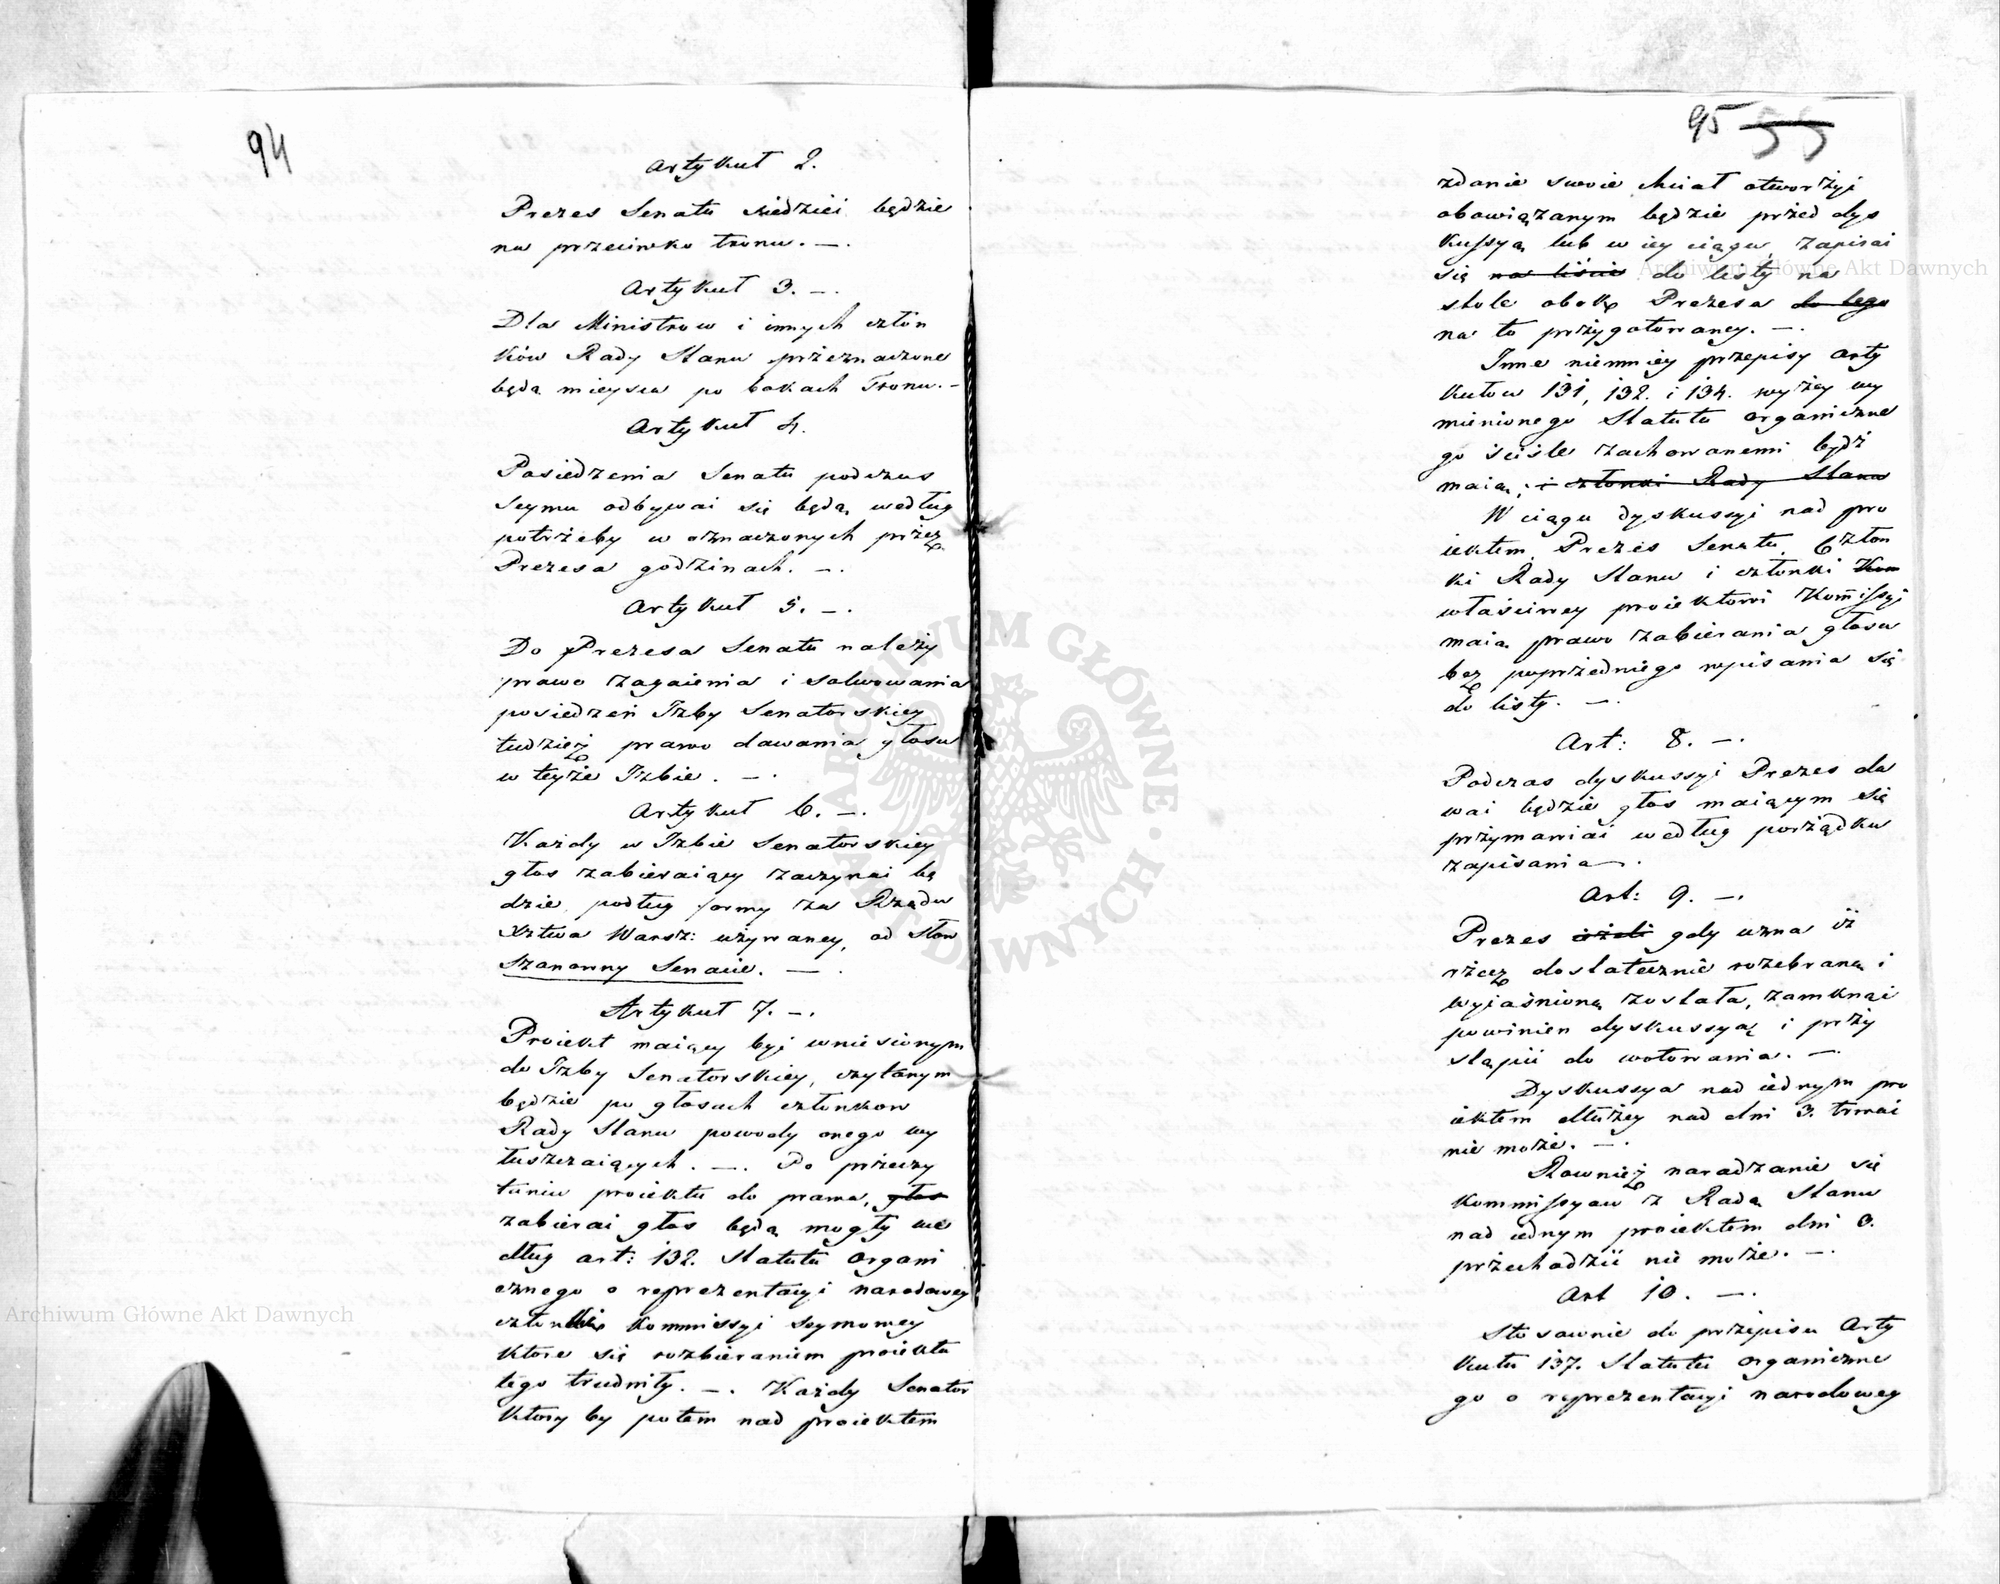 94
Artykuł 2.
Prezes Senatu siedzieć będzie
na przeciwko tronu. —.
Artykuł 3. —.
Dla Ministrow i innych człon
ków Rady Stanu przeznaczone
będą mieysca po bokach Tronu. —
Artykuł 4.
Posiedzenia Senatu podczas
Seymu odbywać się będą według
potrzeby w oznaczonych przez
Prezesa godzinach. —.
Artykuł 5. —.
Do Prezesa Senatu należy
prawo zagaienia i solwowania
posiedzeń Izby Senatorskiey
tudzież prawo dawania głosu
w teyże Izbie. —.
Artykuł 6. —.
Każdy w Izbie Senatorskiey
głos zabieraiący zaczynać bę
dzie podług formy za Rządu
Xztwa Warsz: używaney, od słow
Szanowny Senacie. —.
Artykuł 7. —.
Proiekt maiący być wniesionym
do Izby Senatorskiey, czytanym
będzie po głosach członkow
Rady Stanu powody onego wy
łuszczaiących. —. Po przeczy
taniu proiektu do prawa, głos
zabierać głos będą mogły we
dług art: 132. Statutu Organi
cznego o reprezentacyi narodowey
członki Kommissyi Seymowey
ktore się rozbieraniem proiektu
tego trudniły. —. Każdy Senator
ktory by potem nad proiektem
95 55
zdanie swoie chciał otworzyć
obowiązanym będzie przed dys
kussyą lub w iey ciągu, zapisać
się na liście do listy na
stole obok Prezesa do tego
na to przygotowaney. —.
Inne niemniey przepisy arty
kułow 131, 132. i 134. wyżey wy
mienionego Statutu organiczne
go ściśle zachowanemi bydź
maią, i członki Rady Stanu
W ciągu dyskussyi nad pro
iektem, Prezes Senatu, Człon
ki Rady Stanu i członki Kom
właściwey proiektowi Kommissyi
maią prawo zabierania głosu
bez poprzedniego wpisania się
do listy. —.
Art: 8. —.
Podczas dyskussyi Prezes da
wać będzie głos maiącym się
przymawiać według porządku
zapisania.
Art: 9. —.
Prezes ieżeli gdy uzna iż
rzecz dostatecznie rozebraną i
wyiaśnioną została, zamknąć
powinien dyskussyą i przy
stąpić do wotowania. —.
Dyskussya nad iednym pro
iektem dłużey nad dni 3. trwać
nie może. —.
Rownież naradzanie się
Kommissyow z Radą Stanu
nad iednym proiektem dni 3.
przechodzić nie może. —.
Art 10. —.
Stosownie do przepisu Arty
kułu 137. Statutu Organiczne
go o reprezentacyi narodowey
Archiwum Główne Akt Dawnych
Archiwum Główne Akt Dawnych
ARCHIWUM GŁÓWNE AKT DAWNYCH